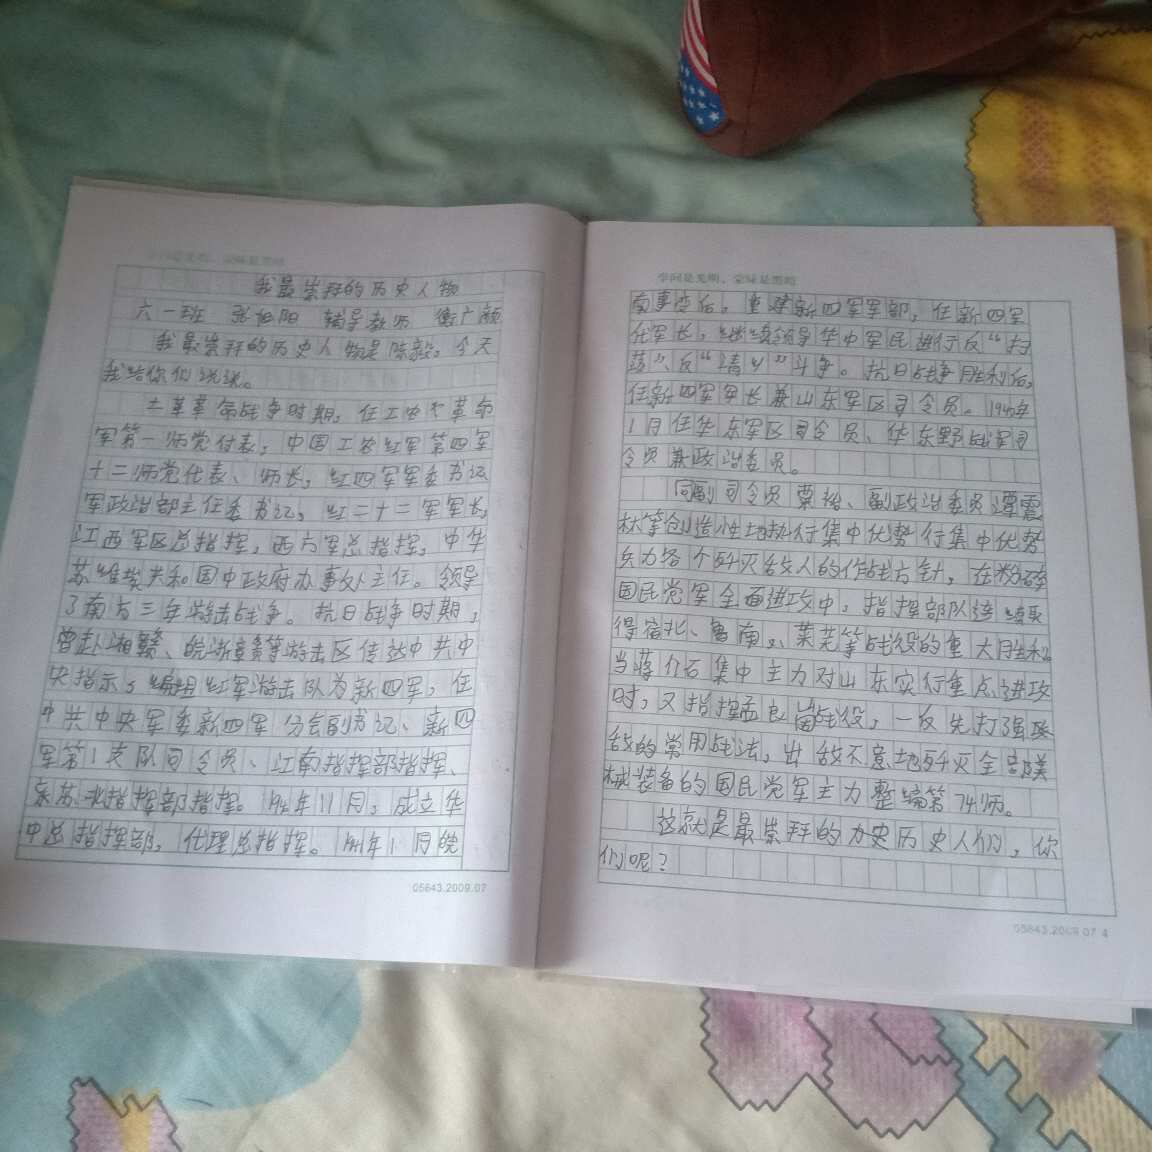 学问是光明，蒙昧是黑暗
我最崇拜的历史人物
六一班 张旭阳 辅导教师 衡广颜
我最崇拜的历史人物是陈毅。今天
我给你们说说。
土革革命战争时期，任工农革命
军第一师党付表，中国工农红军第四军
十二师党代表、师长，红四军军委书记
军政治部主任委书记，红二十二军军长，
江西军区总指挥，西方军总指挥，中华
苏维埃共和国中政府办事处主任。领导
了南方三年游击战争。抗日战争时期，
曾赴湘赣、皖浙赣等游击区传达中共中
央指示，编组红军游击队为新四军，任
中共中央军委新四军分会副书记、新四
军第1支队司令员、江南指挥部指挥、
苏北指挥部指挥。年11月，成立华
中总指挥部，代理总指挥。年1月皖
05643.2009.07
学问是光明，蒙昧是黑暗
南事变后，重建新四军军部，任新四军
代军长，继续领导华中军民进行反“扫
荡”、反“清乡”斗争。抗日战争胜利后，
任新四军军长兼山东军区司令员。年
1月任华东军区司令员、华东野战军司
令员兼政治委员。
同副司令员粟裕、副政治委员谭震
林等创造性地执行集中优势行集中优势
兵力各个歼灭敌人的作战方针，在粉碎
国民党军全面进攻中，指挥部队连续取
得宿北、鲁南，、莱芜等战役的重大胜利。
当蒋介石集中主力对山东实行重点进攻
时，又指挥孟良崮战役，一反先打弱
敌的常用战法，出敌不意地歼灭全部美
械装备的国民党军主力整编第74师。
这就是最崇拜的历史人们，你
们呢？
05643.2009.07 4